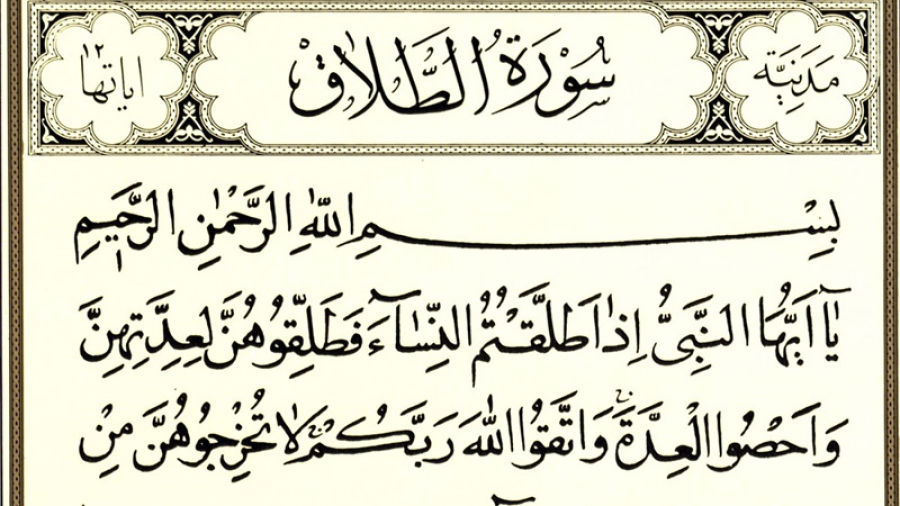 مَدَنِيَّة سُورَةُ الطَّلَاقِ اٰيَاتُهَا ١٢
بِسْمِ اللّٰهِ الرَّحْمٰنِ الرَّحِيمِ
يَٓا اَيُّهَا النَّبِيُّ اِذَا طَلَّقْتُمُ النِّسَٓاءَ فَطَلِّقُوهُنَّ لِعِدَّتِهِنَّ
وَاَحْصُوا الْعِدَّةَۚ وَاتَّقُوا اللّٰهَ رَبَّكُمْۚ لَا تُخْرِجُوهُنَّ مِنْ